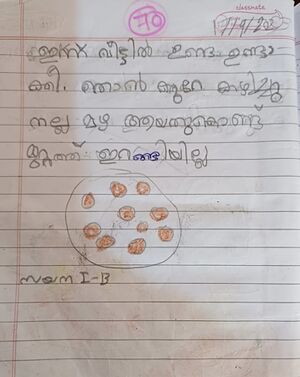 classmate
70
ഇക്ക വീട്ടിൽ ഉണ്ട ഉണ്ടാ
ക്കി. ഞാൻ കുറേ കഴിച്ചു
നല്ല മഴ ആയതുകൊണ്ട്
മുറ്റത്ത് ഇറങ്ങിയില്ല
സയന I-B